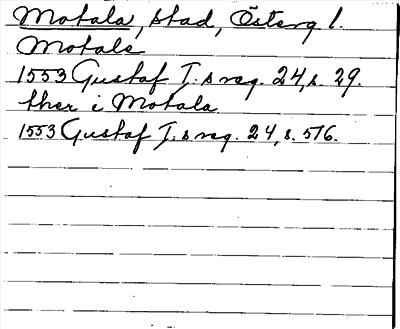 Motala, stad, Österg l.
Motale
1553 Gustaf I.s reg. 24, s. 29.
ther i Motala
1553 Gustaf I.s reg. 24, s. 516.